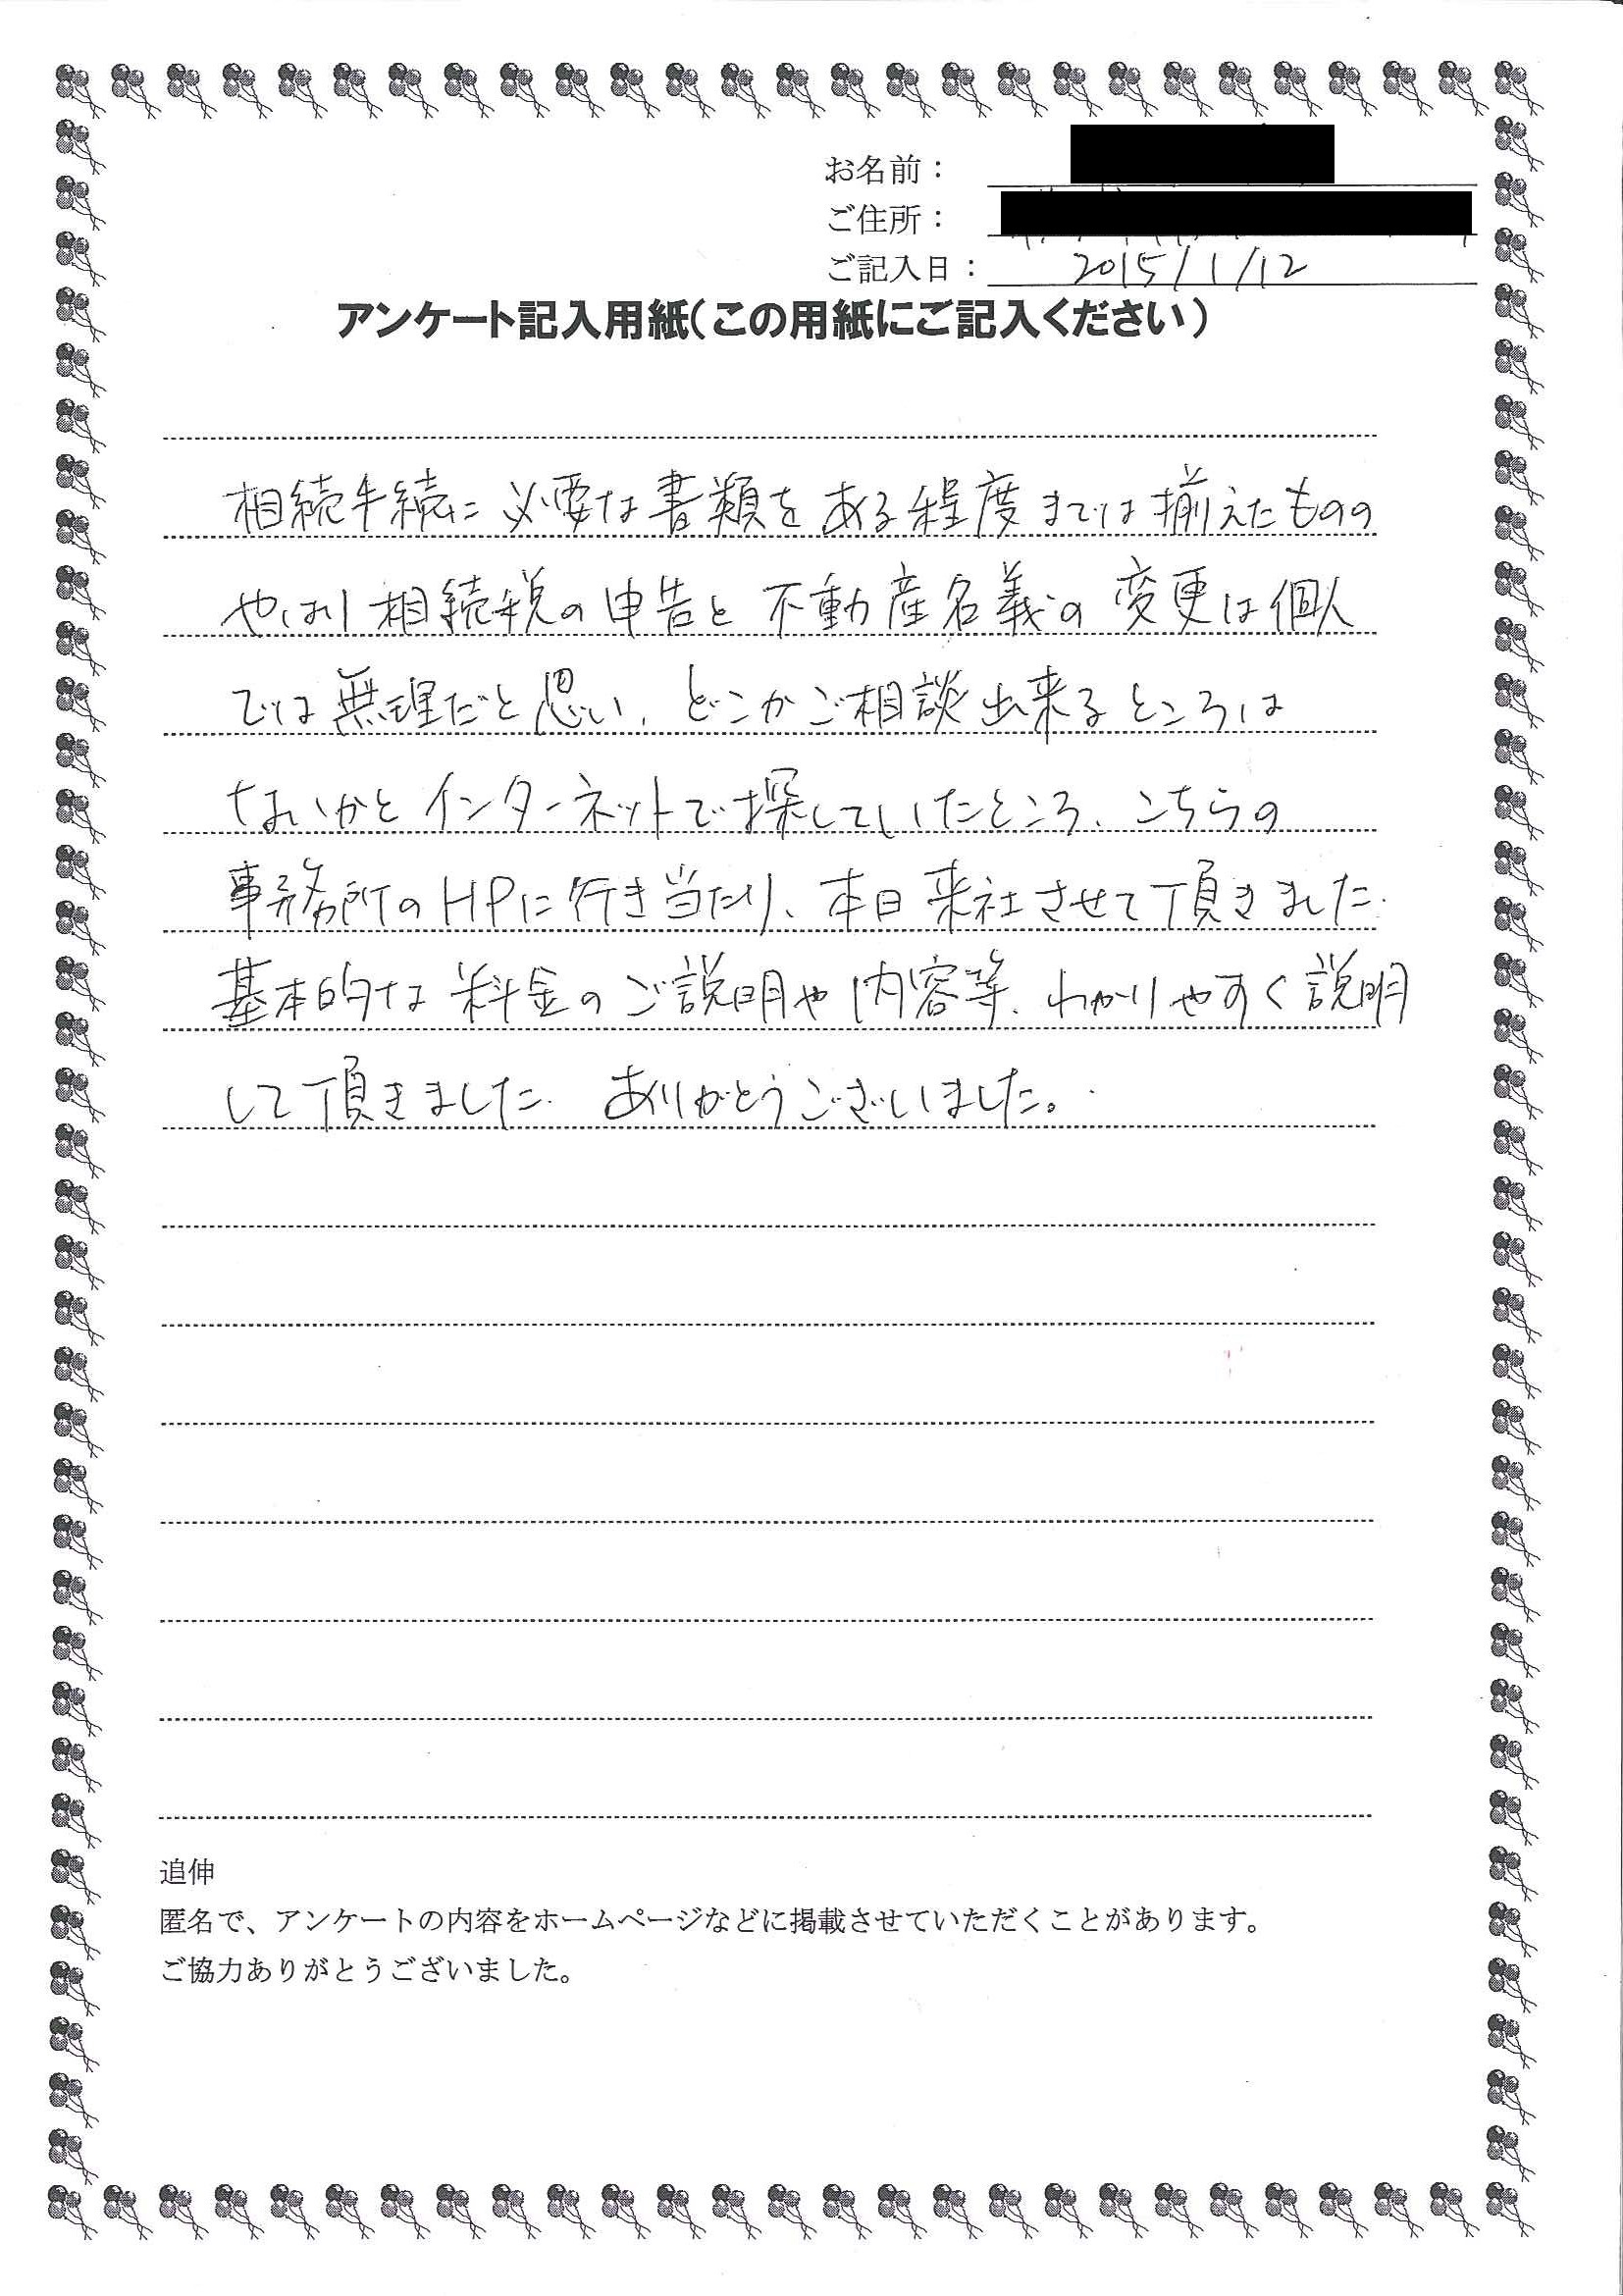 お名前：
ご住所：
ご記入日： 2015/1/12
アンケート記入用紙(この用紙にご記入ください)
相続手続に必要な書類をある程度までは揃えたものの
やはり相続税の申告と不動産名義の変更は個人
では無理だと思い、どこかご相談出来るところは
ないかとインターネットで探していたところ、こちらの
事務所のHPに行き当たり、本日来社させて頂きました。
基本的な料金のご説明や内容等、わかりやすく説明
して頂きました。ありがとうございました。
追伸
匿名で、アンケートの内容をホームページなどに掲載させていただくことがあります。
ご協力ありがとうございました。